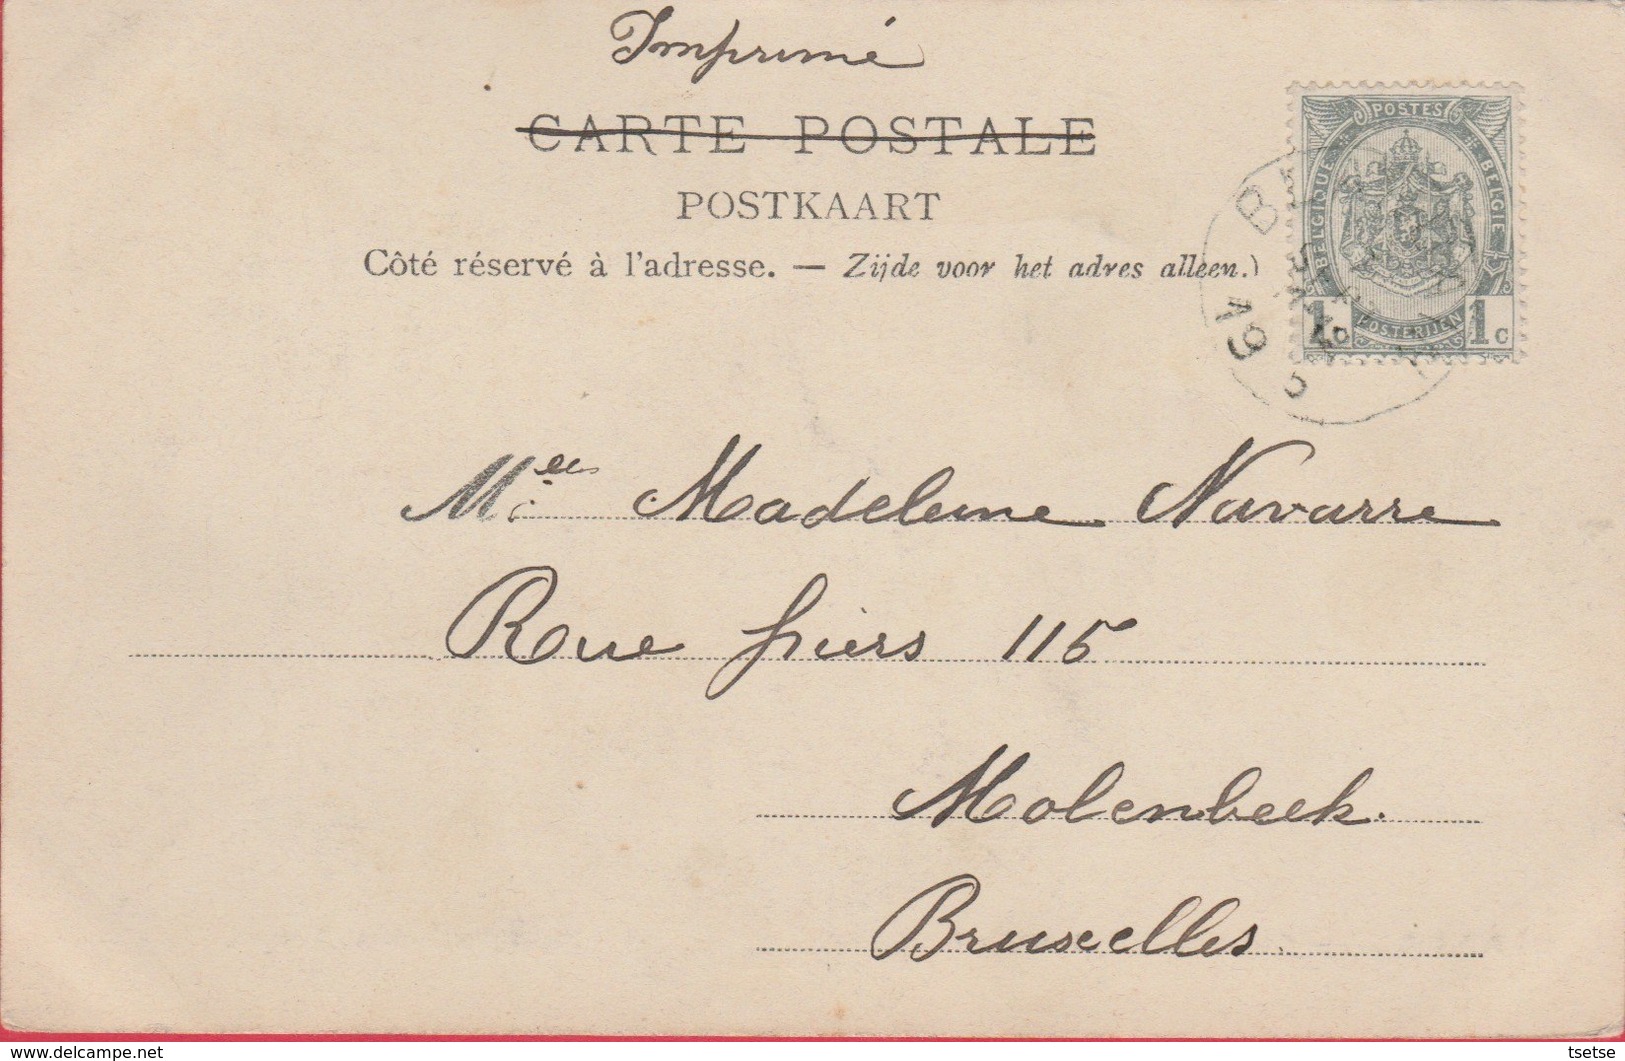 Imprimé
CARTE POSTALE
POSTKAART
Côté réservé à l'adresse. — Zijde voor het adres alleen.)
POSTES
BELGIQUE
BELGIE
POSTERIJEN
1c 1c
19
Madeleine Navarre
Rue piers 115
Molenbeek.
Bruxelles
tsetse
https://www.delcampe.net